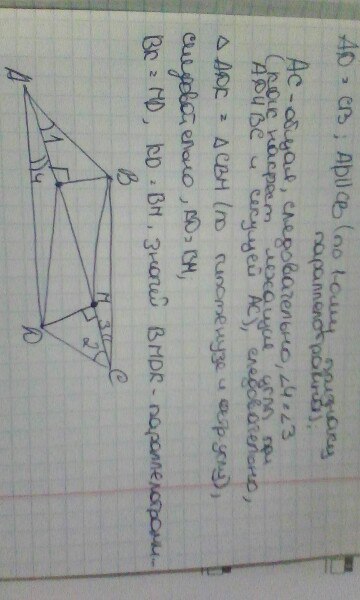 AD = CB; AD||CB (по 1-ому признаку
параллелограмма).
AC - общая, следовательно, ∠4 = ∠3
(как накрест лежащие углы при
AD||BC и секущей AC), следовательно,
△ADK = △CBM (по гипотенузе и углу),
следовательно, KD = BM,
BK = MD, KD = BM, значит BMDK - параллелограмм.
A
B
C
D
M
1
4
3
2